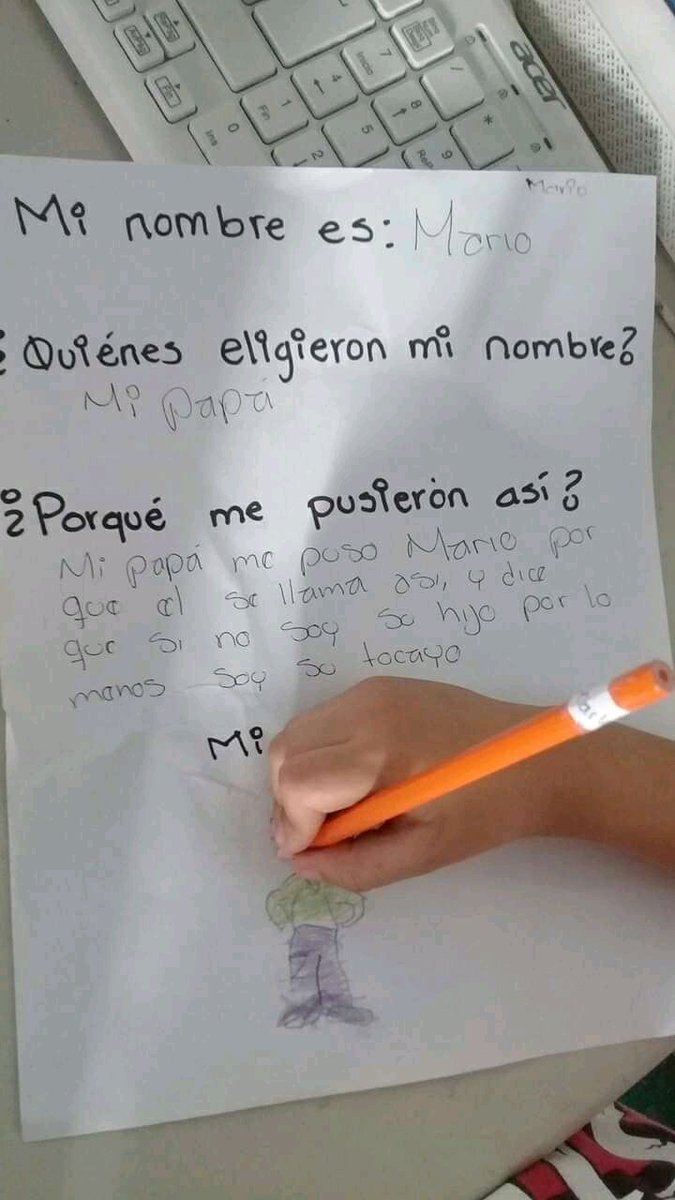 acer
7
Inicio
4
1
Fin
0
Ins
8
5
2
9
*
/
Mario
Mi nombre es: Mario
¿Quiénes eligieron mi nombre?
Mi papá
¿Porqué me pusierón así?
Mi papá me puso Mario por
que el se llama asi, y dice
que si no soy su hijo por lo
manos soy su tocayo
Mi